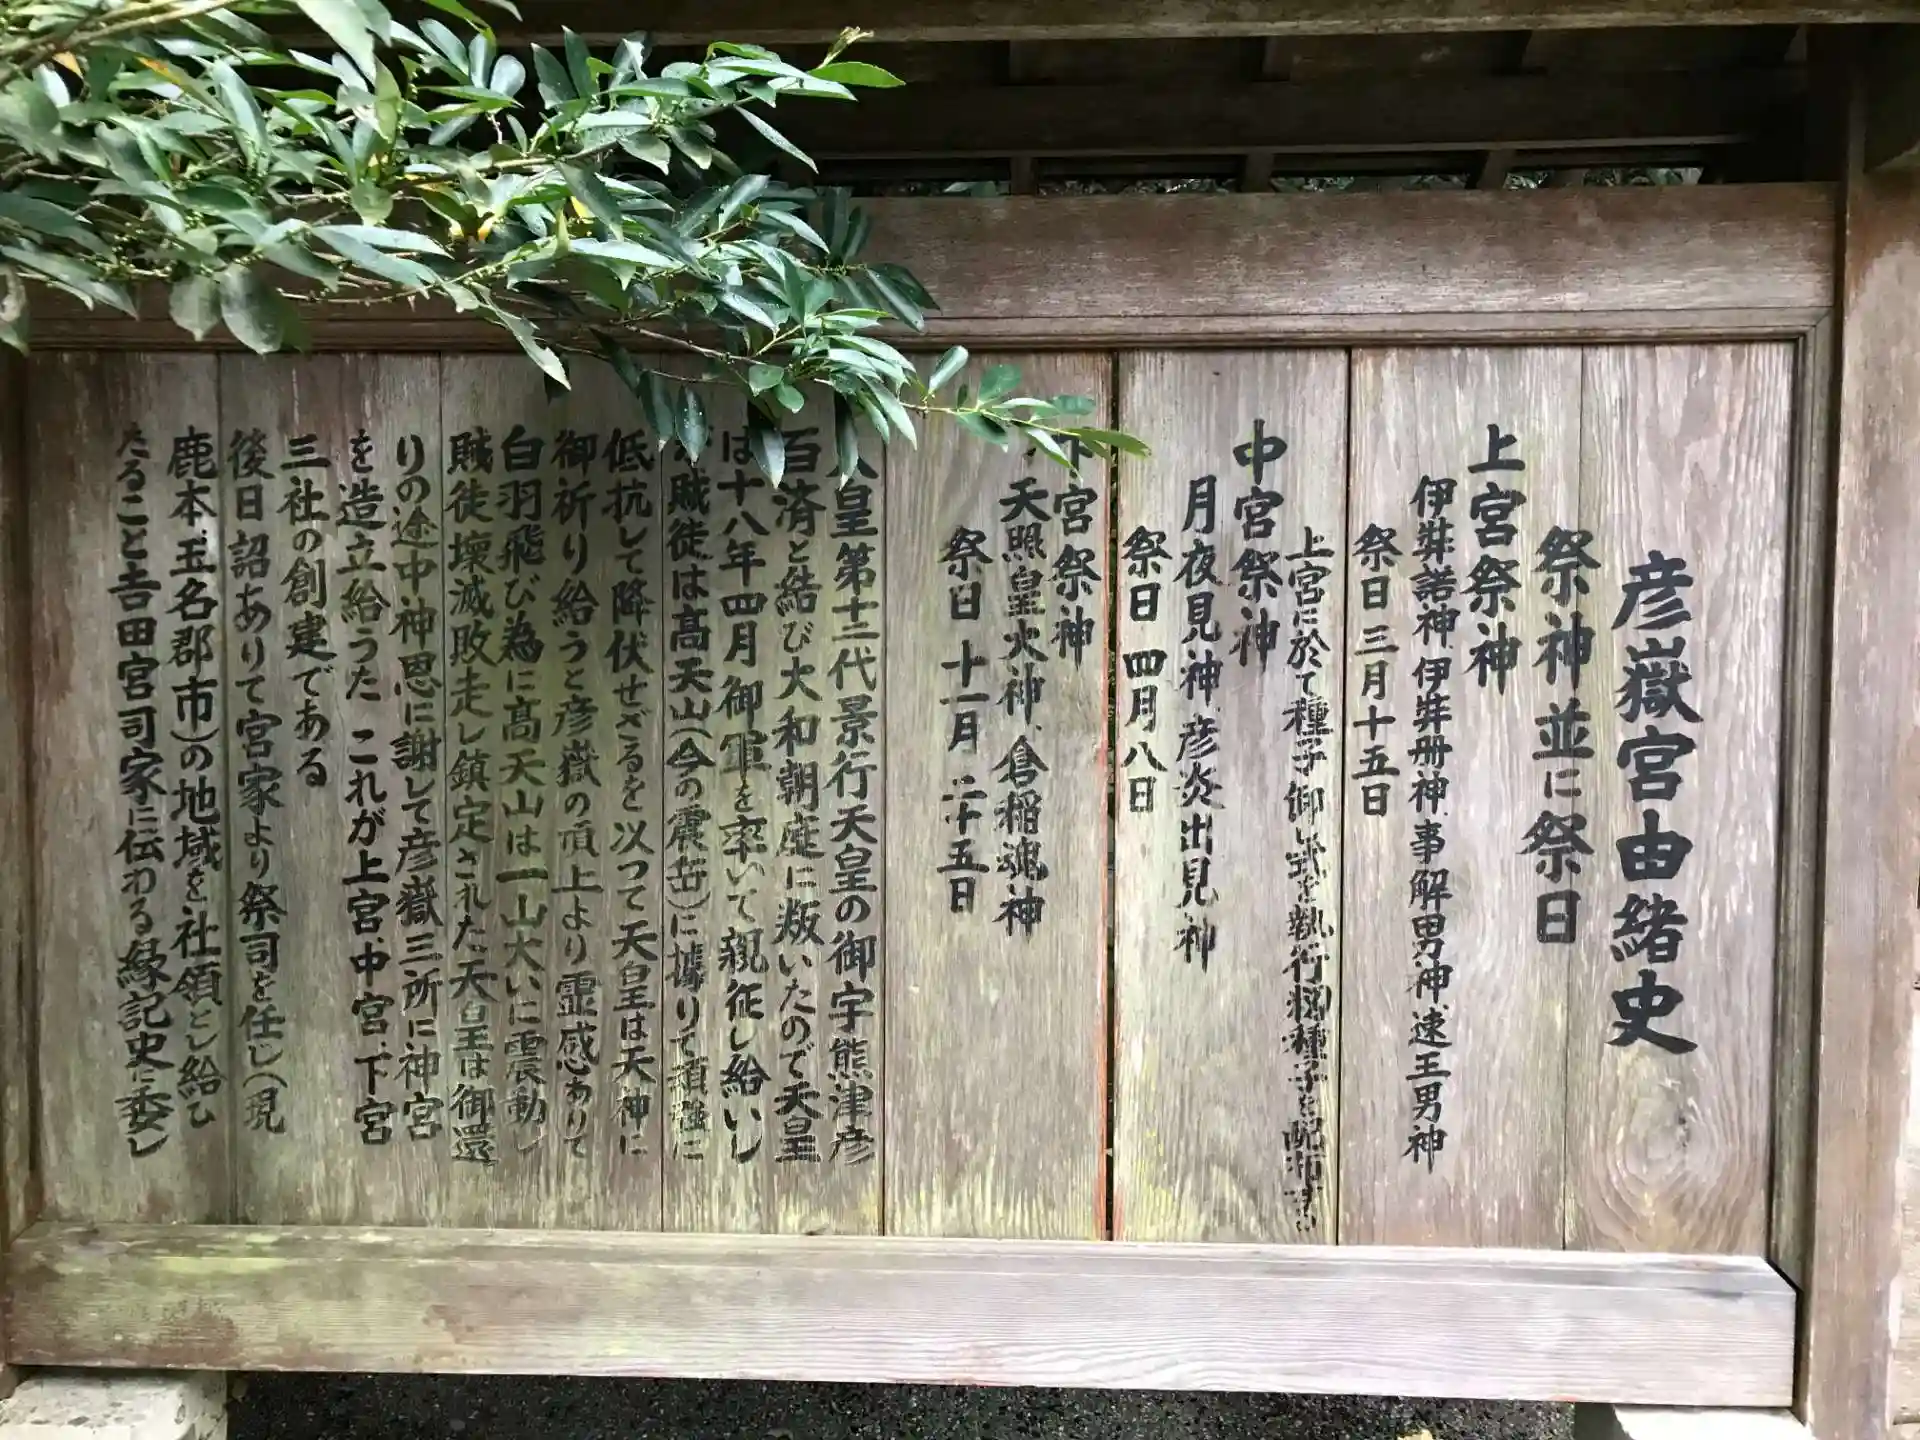 彦嶽宮由緒史
祭神並に祭日
上宮祭神
伊弉諾神、伊弉册神、事解男神、速王男神
祭日 三月十五日
上宮に於て種子御し式を執行籾種子を配布す
中宮祭神
月夜見神、彦炎出見神
祭日 四月八日
下宮祭神
天照皇大神、倉稲魂神
祭日 十一月二十五日
人皇第十二代景行天皇の御宇熊津彦
百済と結び大和朝庭に叛いたので天皇
は十八年四月御軍を率いて親征し給いし
が賊徒は高天山(今の震岳)に據りて頑強に
低抗して降伏せざるを以つて天皇は天神に
御祈り給うと彦嶽の頂上より霊感ありて
白羽飛び為に高天山は一山大いに震動し
賊徒壊滅敗走し鎮定された天皇は御還
りの途中神恩に謝して彦嶽三所に神宮
を造立給うた これが上宮、中宮、下宮
三社の創建である
後日詔ありて宮家より祭司を任じ(現
鹿本、玉名郡市)の地域を社領とし給ひ
たること吉田宮司家に伝わる縁記史に委し